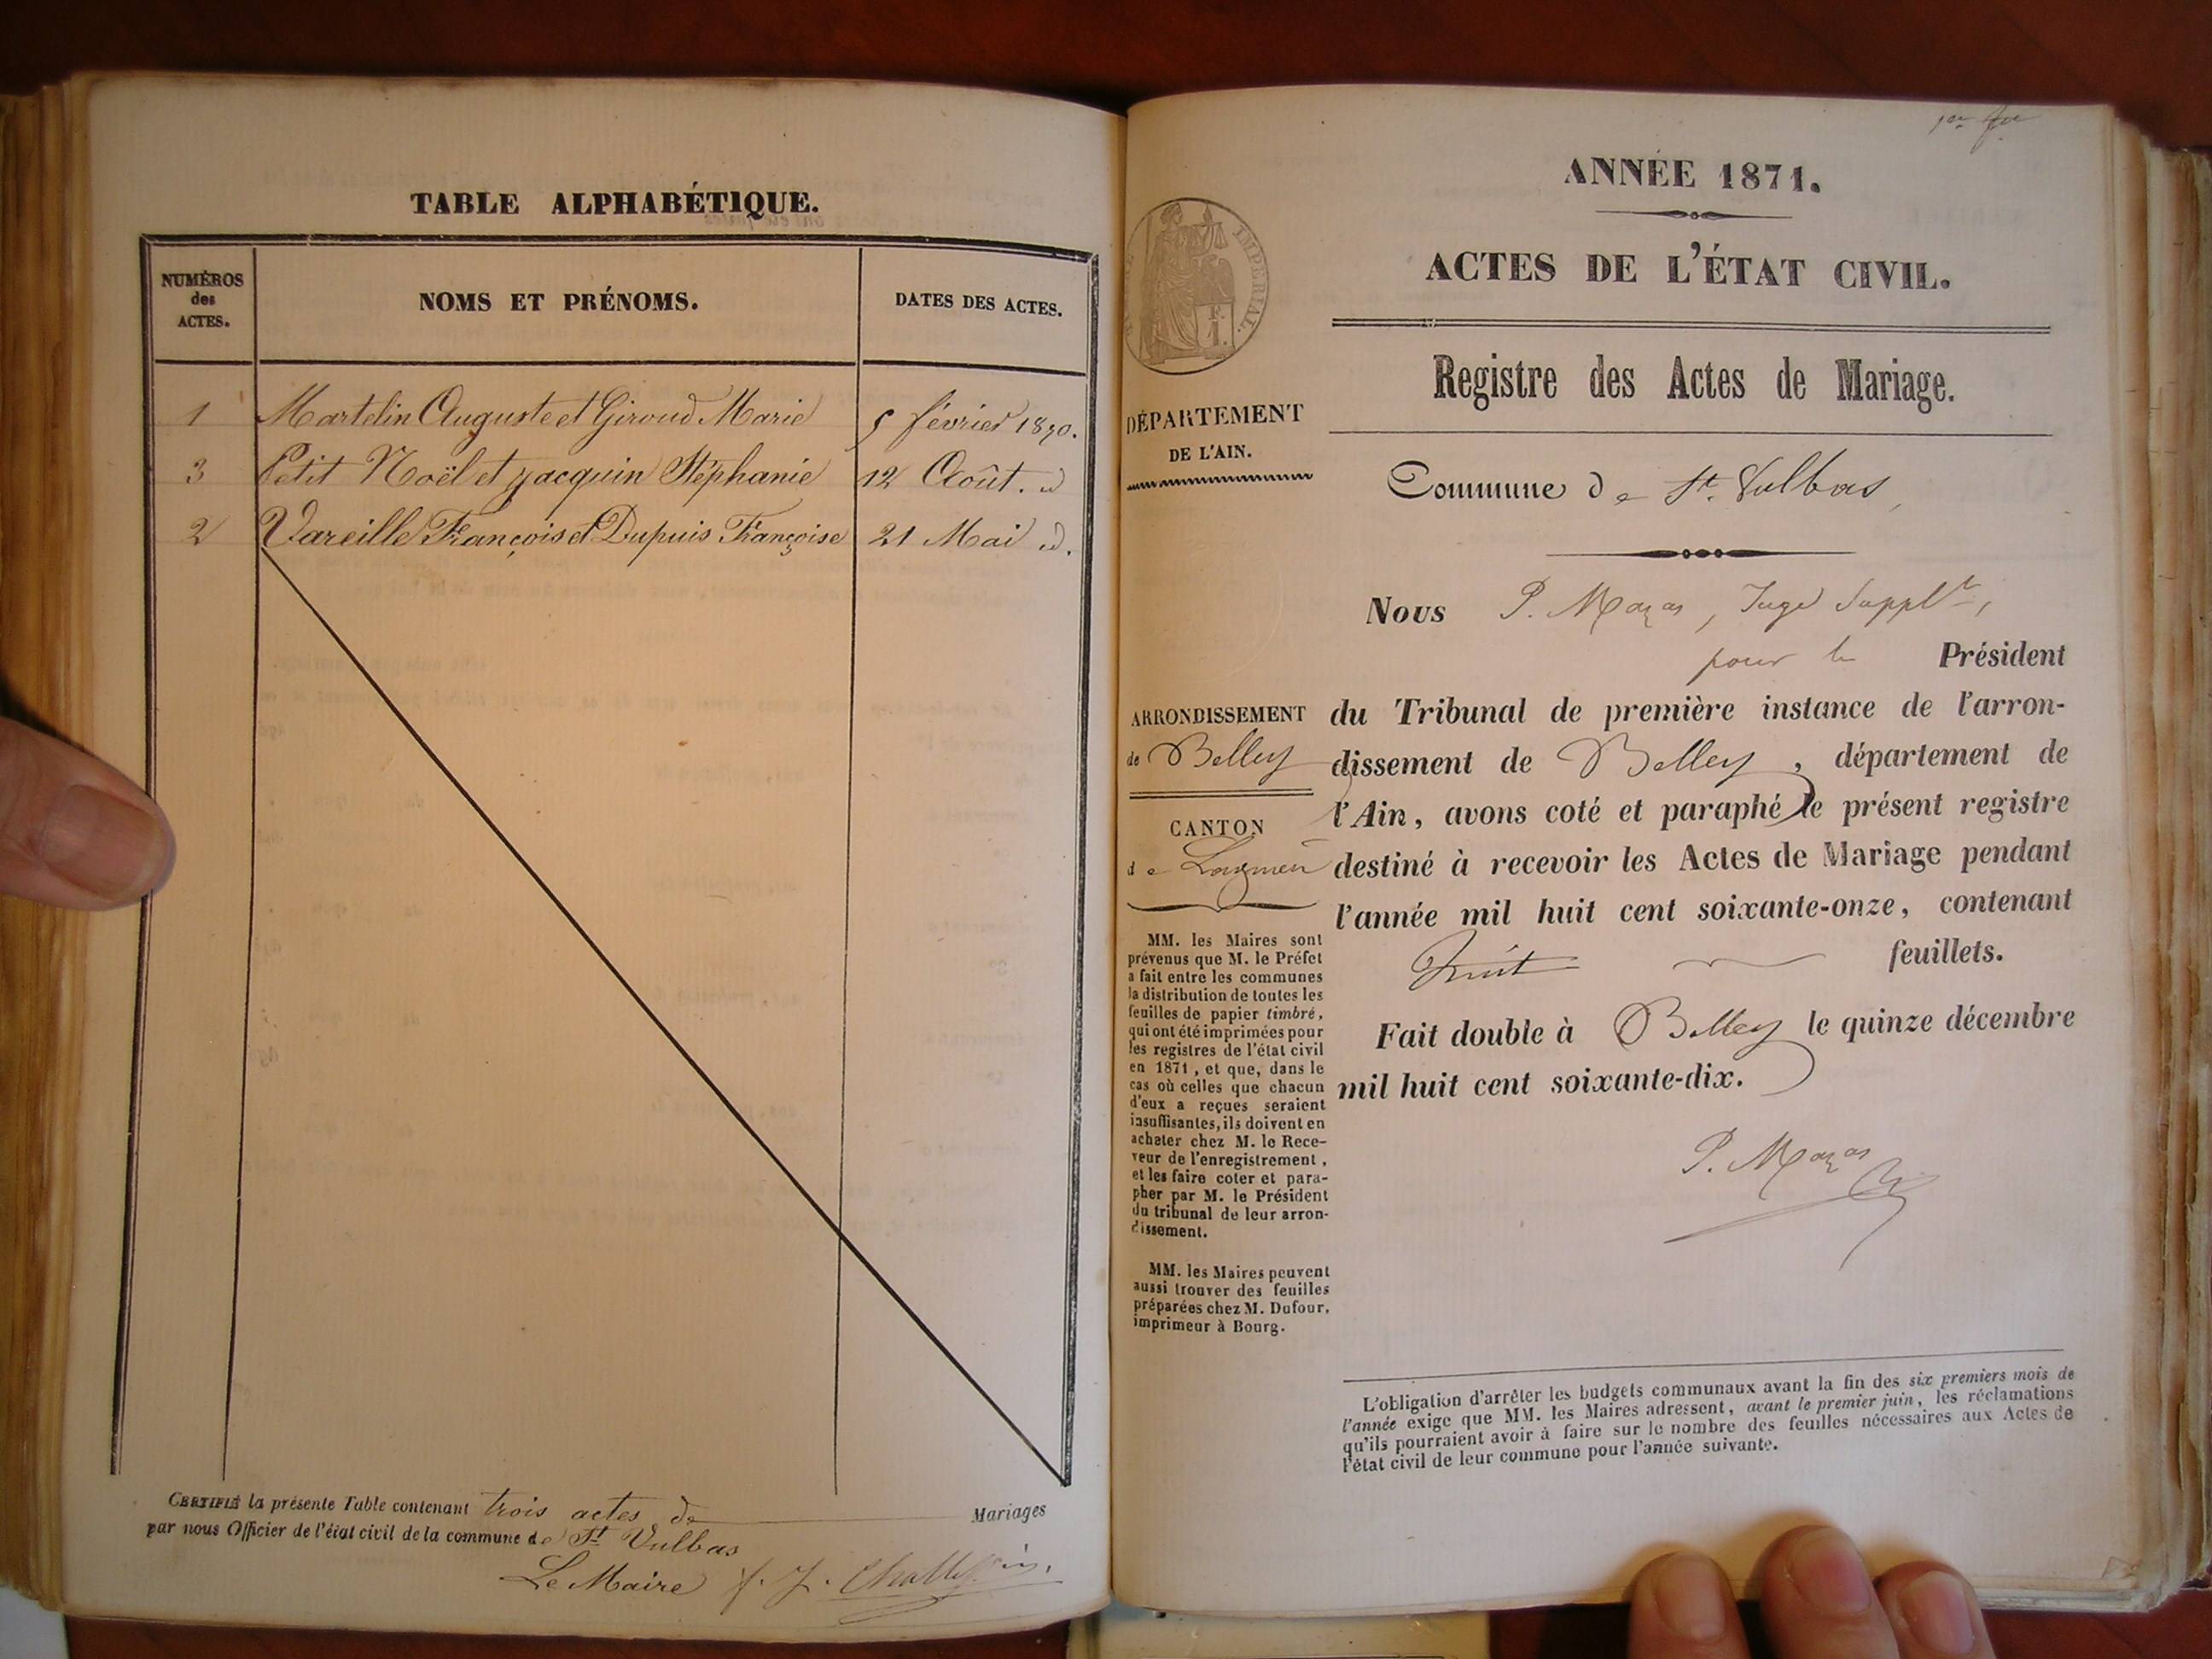 TABLE ALPHABÉTIQUE.
NUMÉROS des ACTES.
NOMS ET PRÉNOMS.
DATES DES ACTES.
1 Martelin Auguste et Giroud Marie 5 février 1870.
3 Petit Noël et Jacquin Stéphanie 12 Août. d
2 Vareille François et Dupuis Françoise 21 Mai d.
CERTIFIÉ la présente Table contenant trois actes de Mariages
par nous Officier de l'état civil de la commune de St Vulbas
Le Maire
1er
ANNÉE 1871.
ACTES DE L'ÉTAT CIVIL.
Registre des Actes de Mariage.
IMPÉRIAL.
1 F.
DÉPARTEMENT
DE L'AIN.
Commune de St. Vulbas,
Nous P. Mazas, Juge Supplt,
pour le Président
ARRONDISSEMENT
de Belley
CANTON
de Lagnieu
du Tribunal de première instance de l'arron-
dissement de Belley, département de
l'Ain, avons coté et paraphé le présent registre
destiné à recevoir les Actes de Mariage pendant
l'année mil huit cent soixante-onze, contenant
huit feuillets.
Fait double à Belley le quinze décembre
mil huit cent soixante-dix.
P. Mazas
MM. les Maires sont
prévenus que M. le Préfet
a fait entre les communes
la distribution de toutes les
feuilles de papier timbré,
qui ont été imprimées pour
les registres de l'état civil
en 1871, et que, dans le
cas où celles que chacun
d'eux a reçues seraient
insuffisantes, ils doivent en
acheter chez M. le Rece-
veur de l'enregistrement,
et les faire coter et para-
pher par M. le Président
du tribunal de leur arron-
dissement.
MM. les Maires peuvent
aussi trouver des feuilles
préparées chez M. Dufour,
imprimeur à Bourg.
L'obligation d'arrêter les budgets communaux avant la fin des six premiers mois de
l'année exige que MM. les Maires adressent, avant le premier juin, les réclamations
qu'ils pourraient avoir à faire sur le nombre des feuilles nécessaires aux Actes de
l'état civil de leur commune pour l'année suivante.